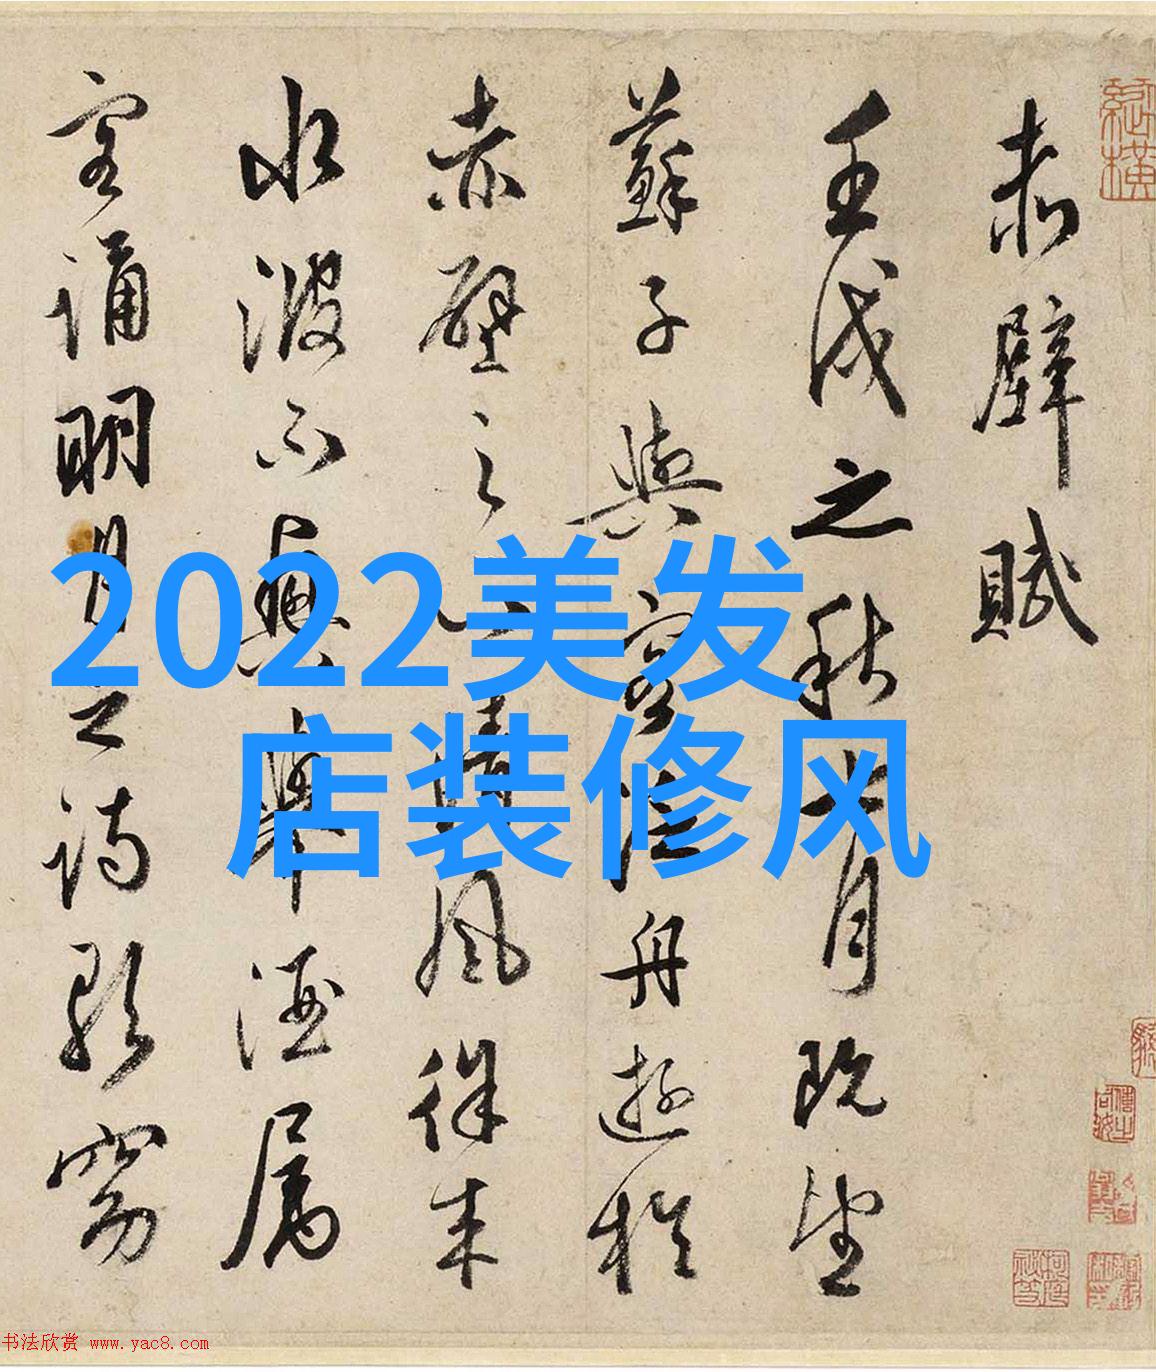 赤壁賦
壬戌之秋七月既望
蘇子與客泛舟遊於
赤壁之下清風徐来
水波不興舉酒属
客誦明月之詩歌窈
2022美发
店装修风
书法欣赏 www.yac8.com